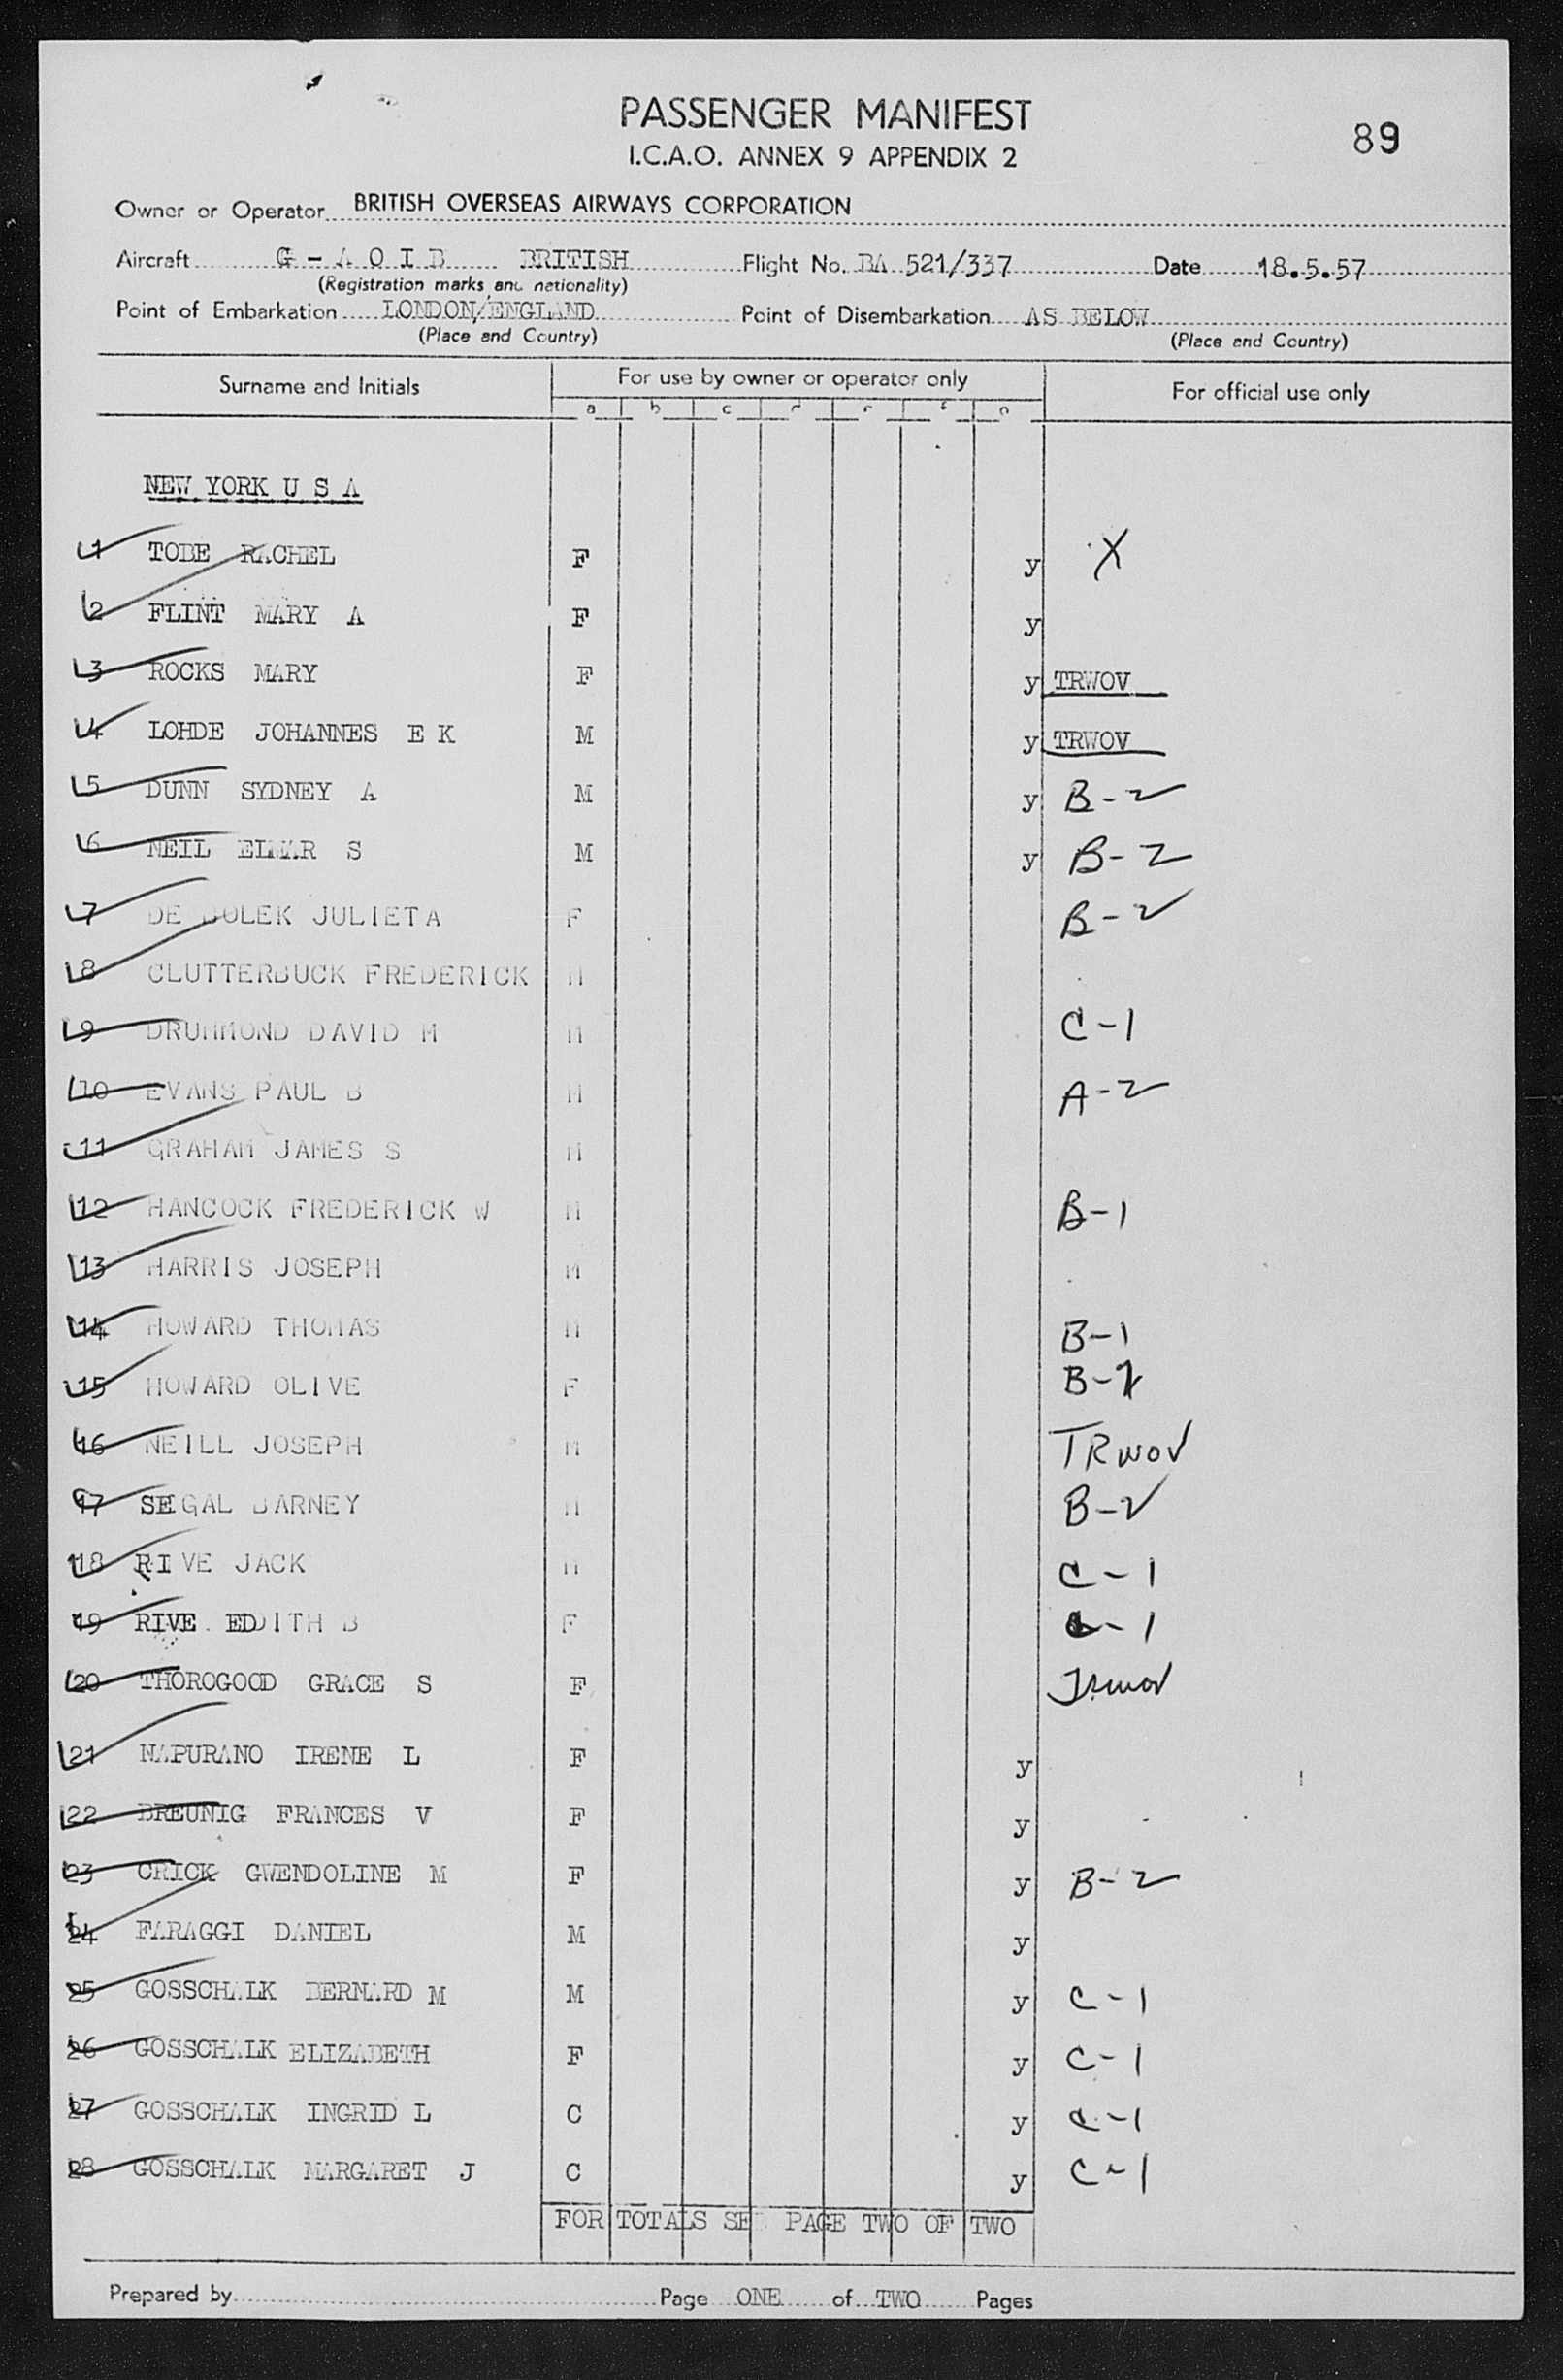 PASSENGER MANIFEST
I.C.A.O. ANNEX 9 APPENDIX 2
89
Owner or Operator BRITISH OVERSEAS AIRWAYS CORPORATION
Aircraft G - A O I B BRITISH Flight No. BA 521/337 Date 18.5.57
(Registration marks and nationality)
Point of Embarkation LONDON/ENGLAND Point of Disembarkation AS BELOW
(Place and Country) (Place and Country)
Surname and Initials For use by owner or operator only For official use only
a b c d e f g
NEW YORK U S A
1 TOBE RACHEL F y X
2 FLINT MARY A F y
3 ROCKS MARY F y TRWOV
4 LOHDE JOHANNES E K M y TRWOV
5 DUNN SYDNEY A M y B-2
6 NEIL ELMAR S M y B-2
7 DE JULIETA F B-2
8 CLUTTERBUCK FREDERICK M
9 DRUMMOND DAVID M M C-1
10 EVANS PAUL B M A-2
11 GRAHAM JAMES S M
12 HANCOCK FREDERICK W M B-1
13 HARRIS JOSEPH M
14 HOWARD THOMAS M B-1
15 HOWARD OLIVE F B-2
16 NEILL JOSEPH M TRWOV
17 SEGAL BARNEY M B-2
18 RIVE JACK M C-1
19 RIVE EDITH B F C-1
20 THOROGOOD GRACE S F Trwov
21 NAPURANO IRENE L F y
22 BREUNIG FRANCES V F y
23 CRICK GWENDOLINE M F y B-2
24 FARAGGI DANIEL M y
25 GOSSCHALK BERNARD M M y C-1
26 GOSSCHALK ELIZABETH F y C-1
27 GOSSCHALK INGRID L C y C-1
28 GOSSCHALK MARGARET J C y C-1
FOR TOTALS SEE PAGE TWO OF TWO
Prepared by Page ONE of TWO Pages